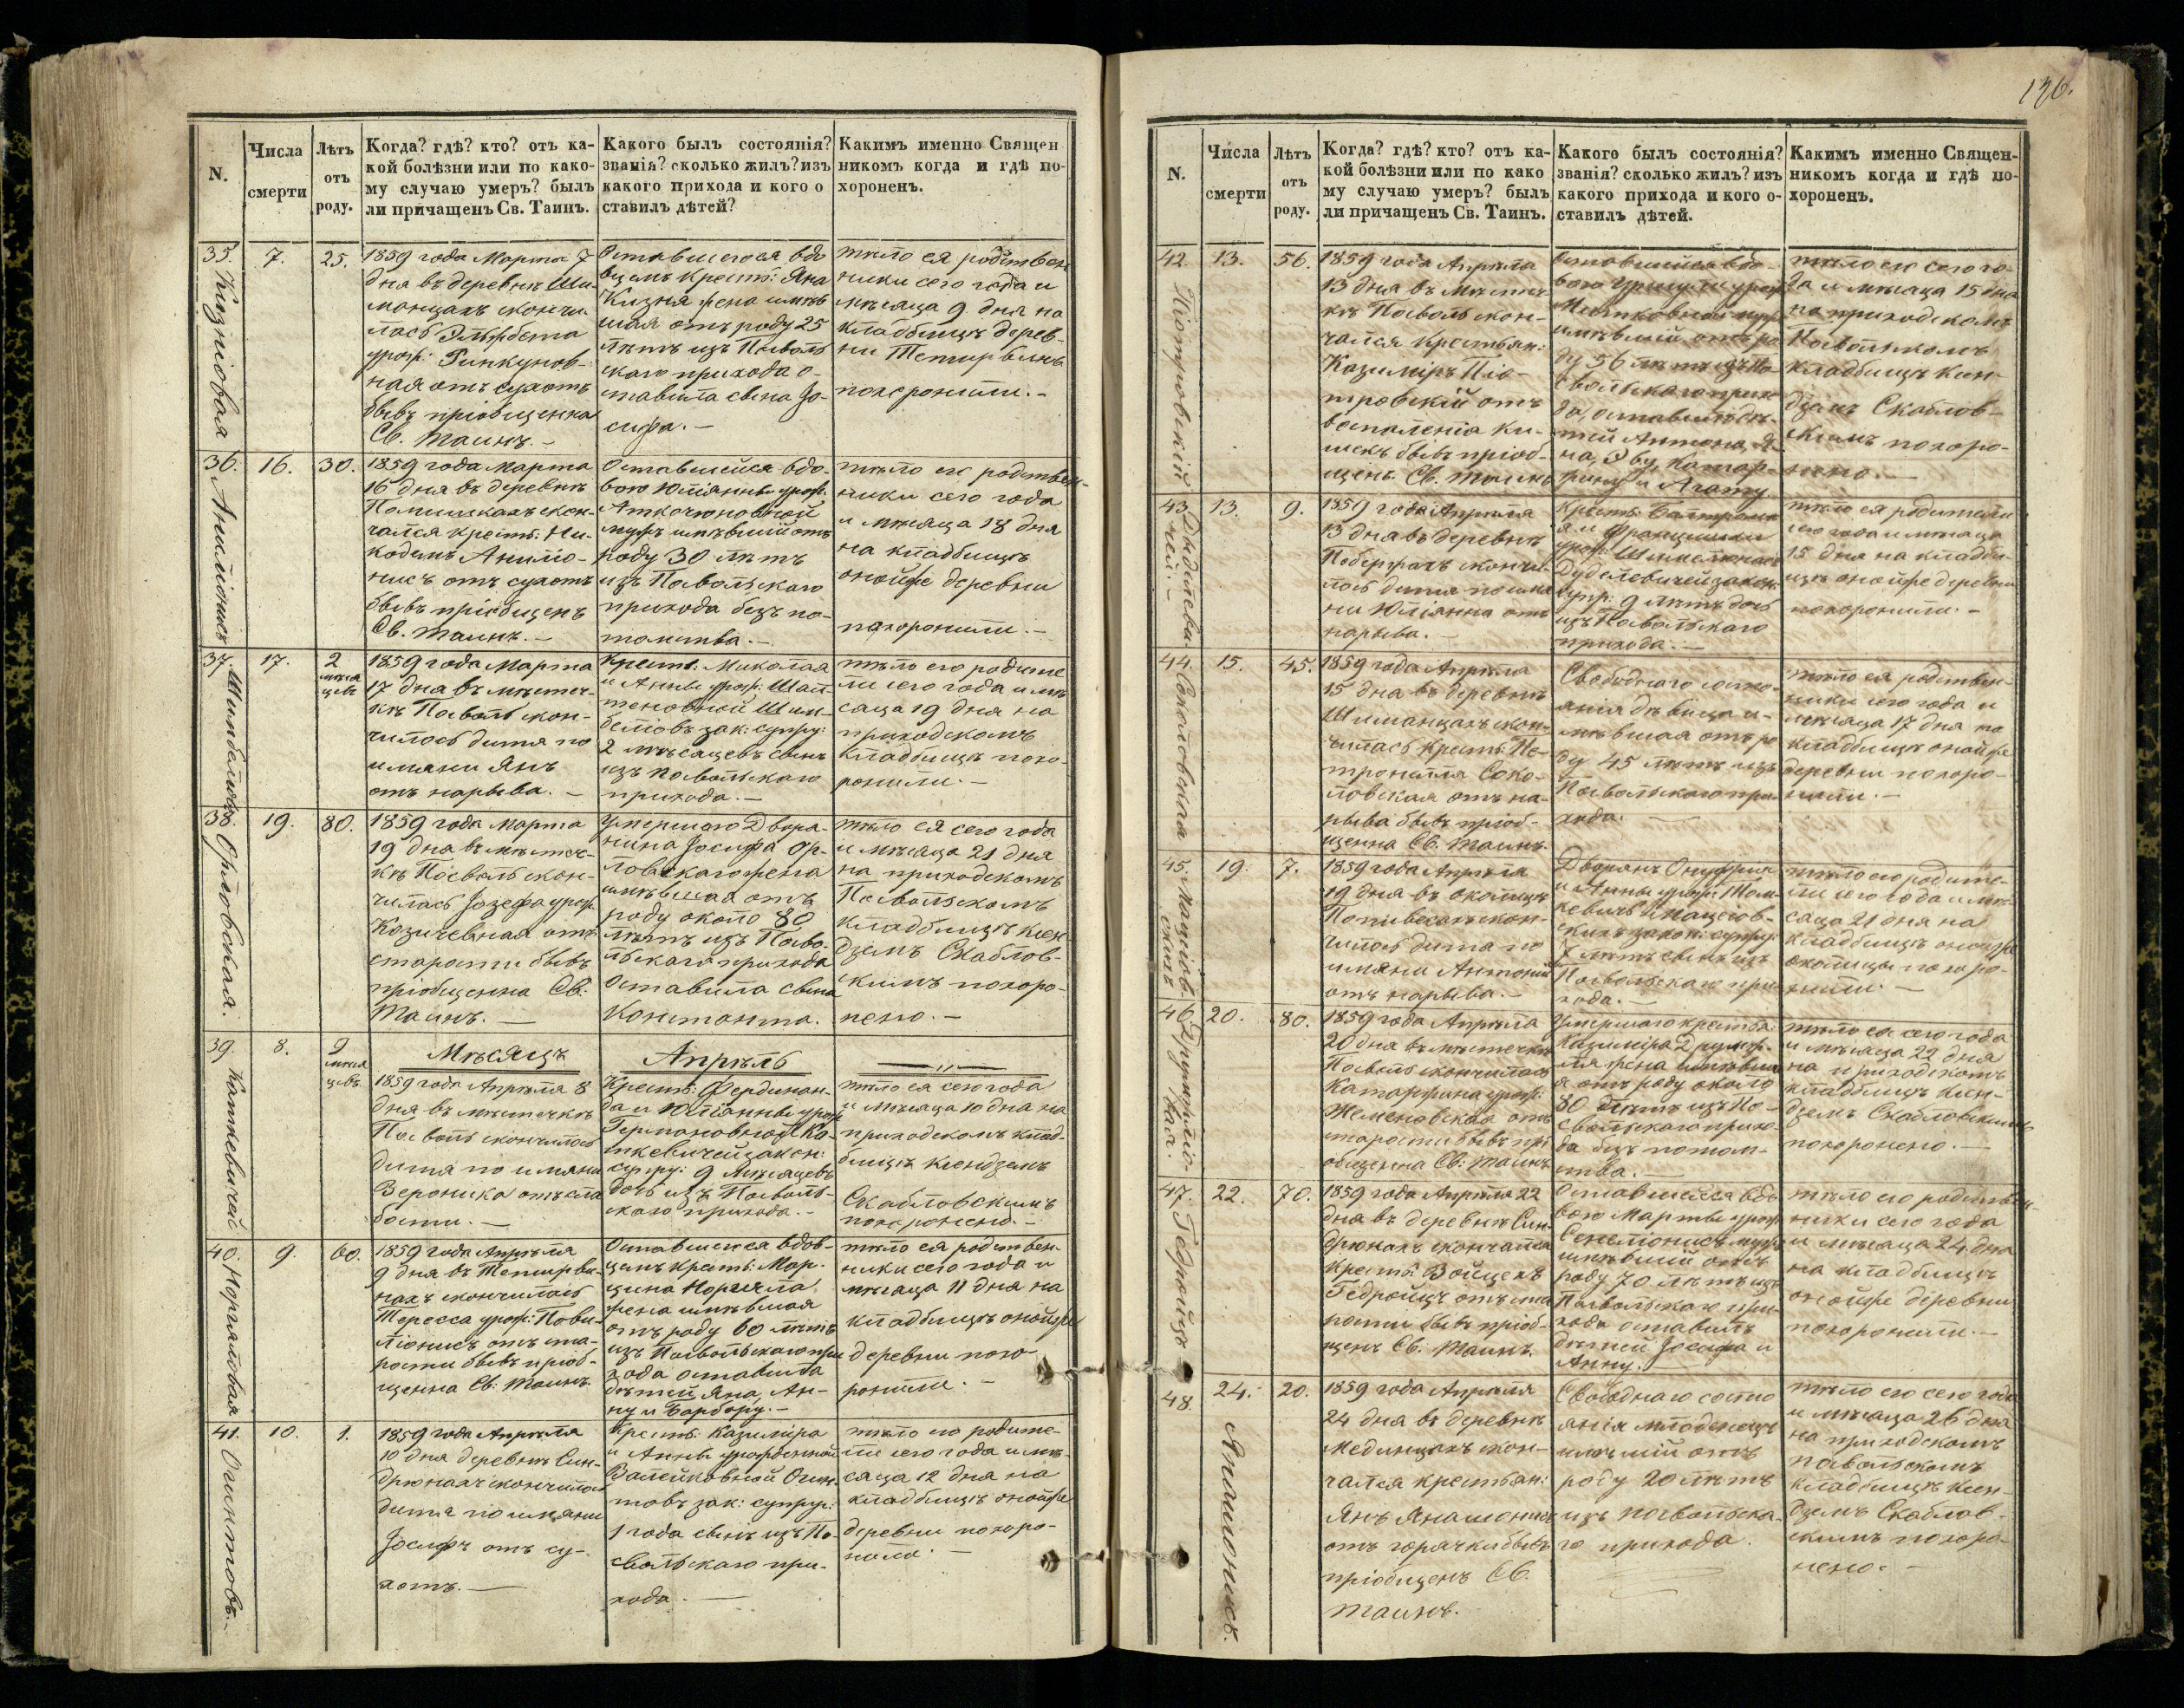 136.
N.
Числа
смерти
Лѣтъ
отъ
роду.
Когда? гдѣ? кто? отъ ка-
кой болѣзни или по како-
му случаю умеръ? былъ
ли причащенъ Св. Таинъ.
Какого былъ состоянія?
званія? сколько жилъ? изъ
какого прихода и кого о
ставилъ дѣтей?
Какимъ именно Священ
никомъ когда и гдѣ по-
хороненъ.
35.
Кизніовая
7.
25.
1859 года Марта 7
дня въ деревнѣ Ши-
манцахъ скончи-
лась Эльжбета
урож: Гинкунов-
ная отъ сухотъ
бывъ пріобщенна
Св. Таинъ. –
Оставшегося вдо
вцемъ крест: Яна
Кизня жена имѣв
шая отъ роду 25
лѣтъ изъ Посволь
скаго прихода о-
ставила сына Іо-
сифа. –
тѣло ея родствен
ники сего года и
мѣсяца 9 дня на
кладбищѣ дерев-
ни Тетирвинъ
похоронили. –
36.
16.
30.
1859 года Марта
16 дня въ деревнѣ
скон-
чался крест: Ни-
кодемъ
отъ сухотъ
бывъ пріобщенъ
Св. Таинъ. –
Оставшейся вдо-
вою Юліянны урож.
мужъ имѣвшій отъ
роду 30 лѣтъ
изъ Посвольскаго
прихода безъ по-
томства. –
тѣло его родствен-
ники сего года
и мѣсяца 18 дня
на кладбищѣ
онойже деревни
похоронили. –
37.
17.
2
мѣся
цевъ
1859 года Марта
17 дня въ мѣстеч-
кѣ Посволь скон-
чилось дитя по
имяни Янъ
отъ нарыва. –
Крест: Миколая
и Анны урож:
зак: супру:
2 мѣсяцевъ сынъ
изъ Посвольскаго
прихода. –
тѣло его родите
ли сего года и мѣ
сяца 19 дня на
приходскомъ
кладбищѣ похо-
ронили. –
38.
Орловская.
19.
80.
1859 года Марта
19 дня въ мѣстеч-
кѣ Посволь скон-
чилась Іозефа урож
Козичевная отъ
старости бывъ
пріобщенна Св:
Таинъ. –
Умершаго Дворя-
нина Іосифа Ор-
ловскаго жена
имѣвшая отъ
роду около 80
лѣтъ изъ Посво-
льскаго прихода
Оставила сына
Константа.
тѣло ея сего года
и мѣсяца 21 дня
на приходскомъ
Посвольскомъ
кладбищѣ ксен-
дземъ Скаблов-
скимъ похоро-
нено. –
39.
Каткевичей
8.
9
мѣся
цевъ.
Мѣсяцъ
Апрѣль
1859 года Апрѣля 8
дня въ мѣстечкѣ
Посволь скончилось
дитя по имяни
Вероника отъ сла
бости. –
Крест: Фердинан-
да и Юліянны урож
Германовной Ка-
ткевичей закон:
супру: 9 мѣсяцевъ
дочь изъ Посволь-
скаго прихода. –
тѣло ея сего года
и мѣсяца 10 дня на
приходскомъ клад-
бищѣ ксендземъ
Скабловскимъ
похоронено. –
40.
Норгяловая
9.
60.
1859 года Апрѣля
9 дня въ Тетирви-
нахъ скончилась
Тересса урож:
отъ ста-
рости бывъ пріоб-
щенна Св: Таинъ
Оставшегося вдов-
цемъ крест: Мар-
цина Норгяла
жена имѣвшая
отъ роду 60 лѣтъ
изъ Посвольскаго при
хода оставила
дѣтей Яна, Ан-
ну и Барбару. –
тѣло ея родствен-
ники сего года и
мѣсяца 11 дня на
кладбищѣ онойже
деревни похо-
ронили. –
41.
Огинтовъ. –
10.
1.
1859 года Апрѣля
10 дня деревнѣ Син-
дрюнахъ скончилось
дитя по имяни
Іосифъ отъ су-
хотъ. –
Крест: Казиміра
и Анны урожденной
Валейковной Огин-
товъ зак: супруг:
1 года сынъ изъ По-
свольскаго при-
хода. –
тѣло его родите-
ли сего года и мѣ-
сяца 12 дня на
кладбищѣ онойже
деревни похоро-
нили. –
N.
Числа
смерти
Лѣтъ
отъ
роду.
Когда? гдѣ? кто? отъ ка-
кой болѣзни или по како
му случаю умеръ? былъ
ли причащенъ Св. Таинъ.
Какого былъ состоянія?
званія? сколько жилъ? изъ
какого прихода и кого о-
ставилъ дѣтей.
Какимъ именно Священ-
никомъ когда и гдѣ по-
хороненъ.
42.
Піотровскій
13.
56.
1859 года Апрѣля
13 дня въ мѣстеч
кѣ Посволь скон-
чался крестьян:
Казиміръ Піо-
тровскій отъ
воспаленія ки-
шекъ бывъ пріоб-
щенъ Св. Таинъ
Оставшейся вдо-
вою
имѣвшій отъ ро
ду 56 лѣтъ изъ По
свольскаго прихо
да, оставилъ дѣ-
тей Антона, Я-
на, Эву, Катар-
жину и Агату.
тѣло его сего го-
да и мѣсяца 15 дня
на приходскомъ
Посвольскомъ
кладбищѣ ксен-
дземъ Скаблов-
скимъ похоро-
нено. –
43.
Дыделеви-
чей. –
13.
9.
1859 года Апрѣля
13 дня въ деревнѣ
скончи-
лось дитя по имя
ни Юліянна отъ
нарыва. –
Крест: Балтроме
я и Францишки
урож:
закон:
супр: 9 лѣтъ дочь
изъ Посвольскаго
прихода. –
тѣло ея родители
сего года и мѣсяца
15 дня на кладби-
щѣ онойже деревни
похоронили. –
44.
Соколовская
15.
45.
1859 года Апрѣля
15 дня въ деревнѣ
Шиманцахъ скон-
чилась крест: Пе-
тронелля Соко-
ловская отъ на-
рыва бывъ пріоб-
щенна Св. Таинъ.
Свободнаго состо-
янія дѣвица и-
мѣвшая отъ ро
ду 45 лѣтъ изъ
Посвольскаго при-
хода. –
тѣло ея родствен-
ники сего года и
мѣсяца 17 дня на
кладбищѣ онойже
деревни похоро-
нили. –
45.
Мацѣов-
скихъ
19.
7.
1859 года Апрѣля
19 дня въ околицѣ
скон-
чилось дитя по
имяни Антоній
отъ нарыва. –
Дворянъ Онуфрія
и Анны урож: Том-
кевичъ Мацѣов-
скихъ закон: супру:
7 лѣтъ сынъ изъ
Посвольскаго при
хода. –
тѣло его родите-
ли сего года и мѣ-
сяца 21 дня на
кладбищѣ онойже
околицы похоро-
нили. –
46.
20.
80.
1859 года Апрѣля
20 дня въ мѣстечкѣ
Посволь скончилась
Катаржина урож:
отъ
старости бывъ прі
общенна Св: Таинъ
Умершаго крестья:
Казиміра
жена имѣвша
я отъ роду около
80 лѣтъ изъ По-
свольскаго прихо-
да безъ потом-
ства. –
тѣло ея сего года
и мѣсяца 22 дня
на приходскомъ
кладбищѣ ксен-
дземъ Скабловскимъ
похоронено. –
47.
Гедройцъ
22.
70.
1859 года Апрѣля 22
дня въ деревнѣ Син-
дрюнахъ скончался
крест: Войцехъ
Гедройцъ отъ ста
рости бывъ пріоб-
щенъ Св. Таинъ.
Оставшейся вдо
вою Марты урож
мужъ
имѣвшій отъ
роду 70 лѣтъ изъ
Посвольскаго при-
хода оставилъ
дѣтей Іосифа и
Анну. –
тѣло его родствен-
ники сего года
и мѣсяца 24 дня
на кладбищѣ
онойже деревни
похоронили. –
48.
Янашонисъ.
24.
20.
1859 года Апрѣля
24 дня въ деревнѣ
Мединцахъ скон-
чался крестьян:
Янъ Янашонисъ
отъ горячки бывъ
пріобщенъ Св.
Таинъ.
Свободнаго состо
янія младенецъ
имѣшій отъ
роду 20 лѣтъ
изъ посвольска-
го прихода.
тѣло его сего года
и мѣсяца 26 дня
на приходскомъ
посвольскомъ
кладбищѣ ксен-
дземъ Скаблов-
скимъ похоро-
нено. –